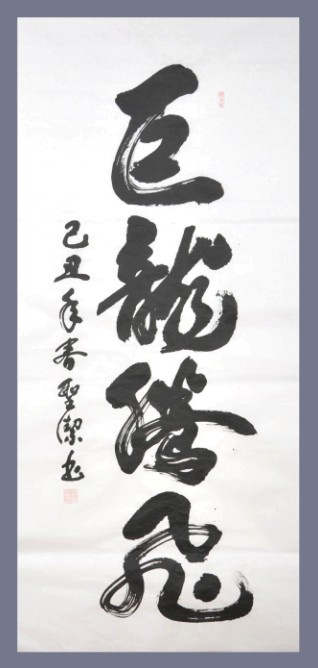 巨龍騰飛
己丑年春聖潔书